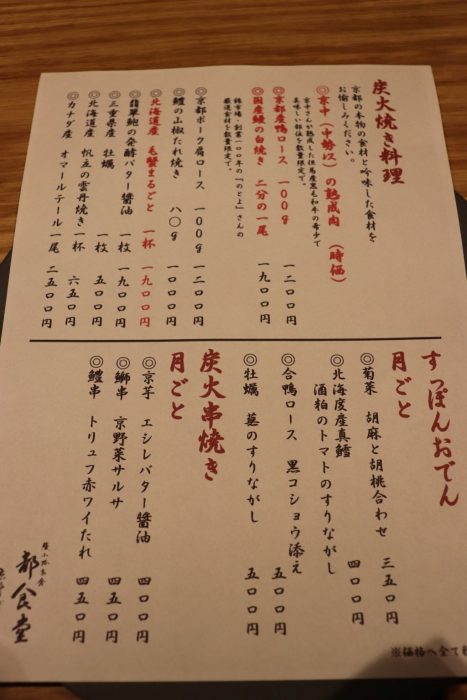 炭火焼き料理
京都の本物の食材と吟味した食材を
お愉しみください。
◎京中(中勢以)の熟成肉 (時価)
京中さんが熟成した但馬産黒毛和牛の希少で
美味しい部位を数量限定で。
◎京都産鴨ロース 一〇〇g 一二〇〇円
◎国産鰻の白焼き 二分の一尾 一九〇〇円
錦市場・創業一〇〇年の「のとよ」さんの
厳選食材を数量限定で。
◎京都ポーク肩ロース 一〇〇g 一二〇〇円
◎鱧の山椒たれ焼き 八〇g 一〇〇〇円
◎北海道産 毛蟹まるごと 一杯 一九〇〇円
◎翡翠鮑の発酵バター醤油 一枚 一九〇〇円
◎三重県産 牡蠣 一枚 五〇〇円
◎北海道産 帆立の雲丹焼き 一杯 六五〇円
◎カナダ産 オマールテール 一尾 二五〇〇円
すっぽんおでん
月ごと
◎菊菜 胡麻と胡桃合わせ 三五〇円
◎北海度産真鱈
酒粕のトマトのすりながし 四〇〇円
◎合鴨ロース 黒コショウ添え 五〇〇円
◎牡蠣 葱のすりながし 五〇〇円
炭火串焼き
月ごと
◎京芋 エシレバター醤油 四〇〇円
◎鰤串 京野菜サルサ 四五〇円
◎鱧串 トリュフ赤ワイたれ 四五〇円
都食堂
※価格へ全て